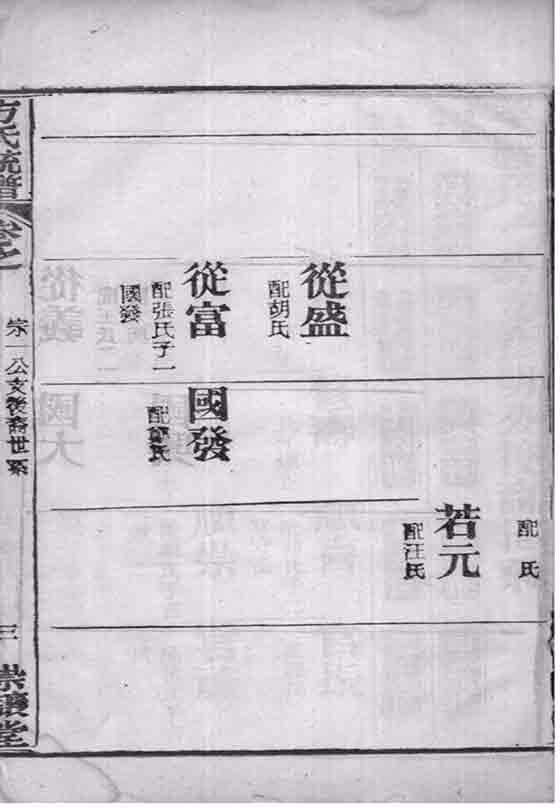 配 氏
若元
配汪氏
從盛
配胡氏
從富
配張氏子一
國發
國發
配鄭氏
方氏統譜
卷之
宗一公支後裔世系
三
崇讓堂